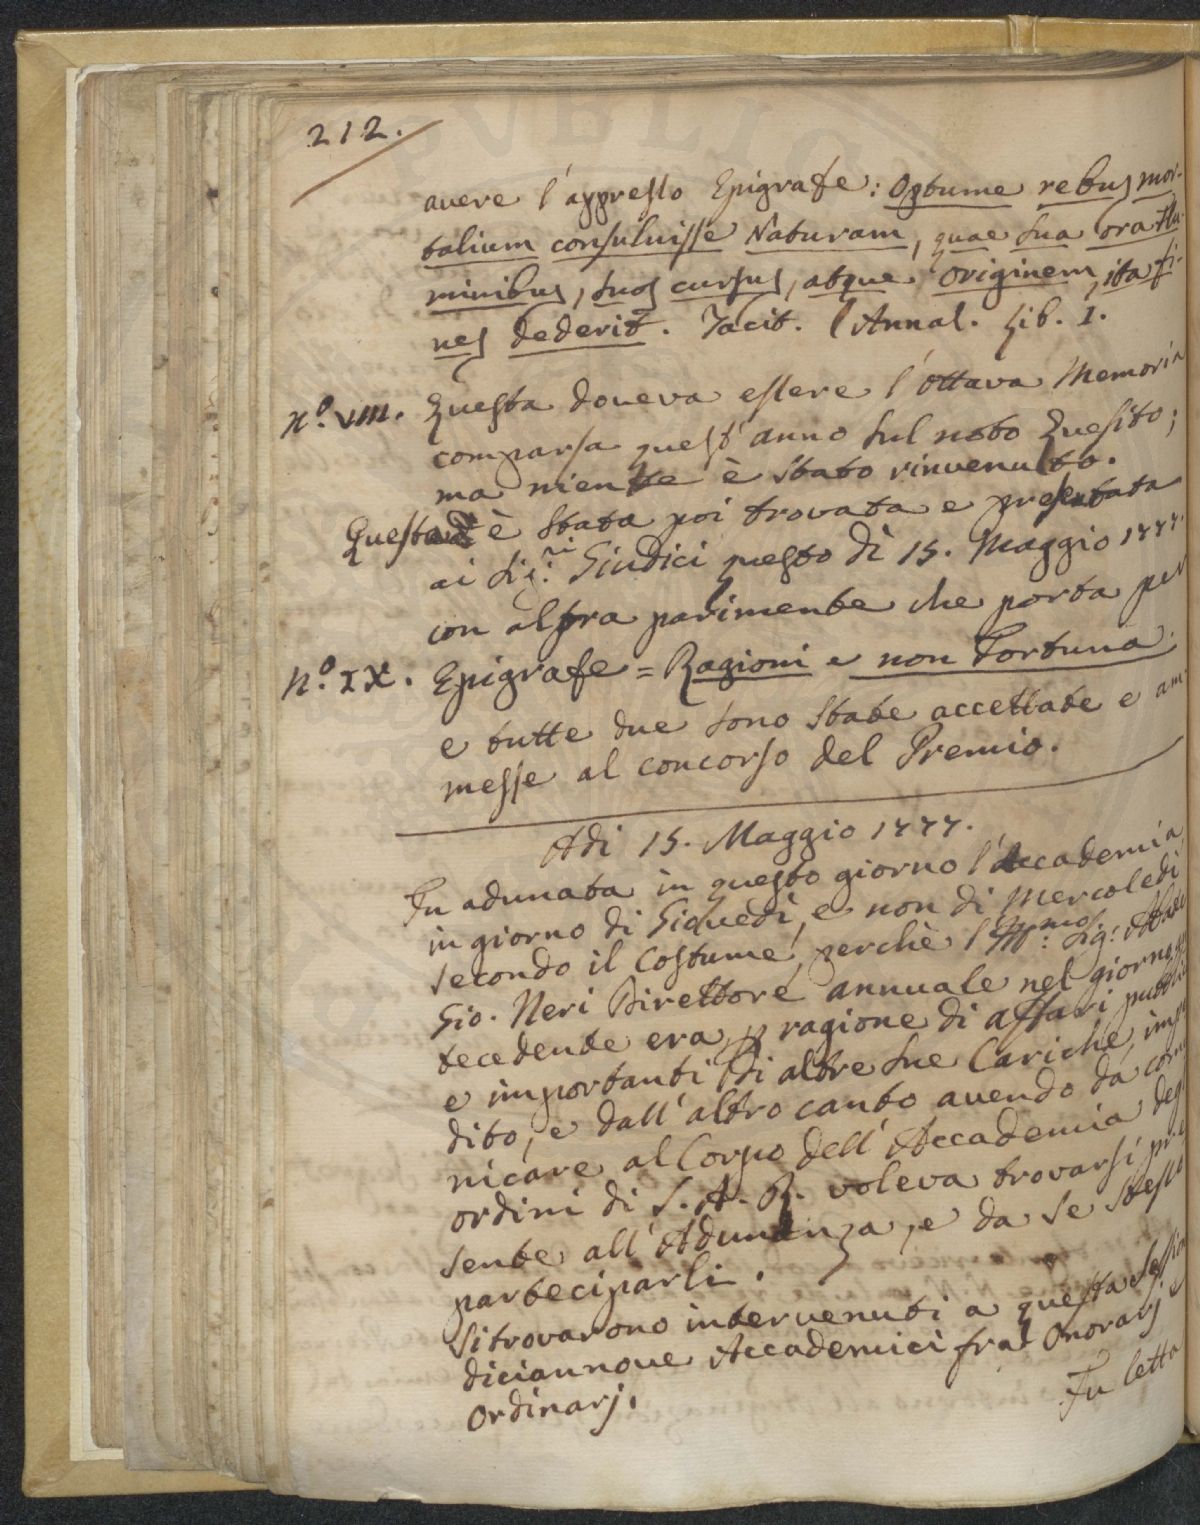 212.
avere l'appresso Epigrafe: Optume rebus mor-
talium consuluisse Naturam, quae sua ora flu-
minibus, suos cursus, atque originem, ita fi-
nes dederit. Tacit. Annal. Lib. I.
N.º VIII. Questa doveva essere l'ottava Memoria
comparsa quest'anno sul noto Quesito;
ma niente è stato rinvenuto.
Questa è stata poi trovata e presentata
ai Sig.ri Giudici questo dì 15. Maggio 1777.
con altra parimente che porta per
N.º IX. Epigrafe = Ragioni e non Fortuna.
e tutte due sono state accettate e am-
messe al concorso del Premio.
Adi 15. Maggio 1777.
Fu adunata in questo giorno l'Accademia
in giorno di Giovedì, e non di Mercoledì
secondo il Costume, perchè l'Ill.mo Sig.
Gio. Neri Direttore annuale nel giorno
tecedente era p ragione di affari pubbli
e importanti di altre sue Cariche imp
dito, e dall'altro canto avendo da com
nicare al Corpo dell'Accademia deg
ordini di S. A. R. voleva trovarsi pre
sente all'Adunanza, e da se stesso
parteciparli.
Si trovarono intervenuti a questa Sessio
diciannove Accademici fra Onorarj e
Ordinarj.
Fu letta